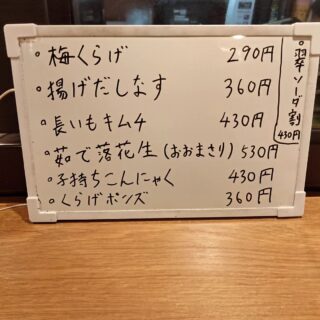 。梅くらげ 290円
。揚げだしなす 360円
。長いもキムチ 430円
。茹で落花生(おおまさり) 530円
。子持ちこんにゃく 430円
。くらげポンズ 360円
。翠ソーダ割
430円